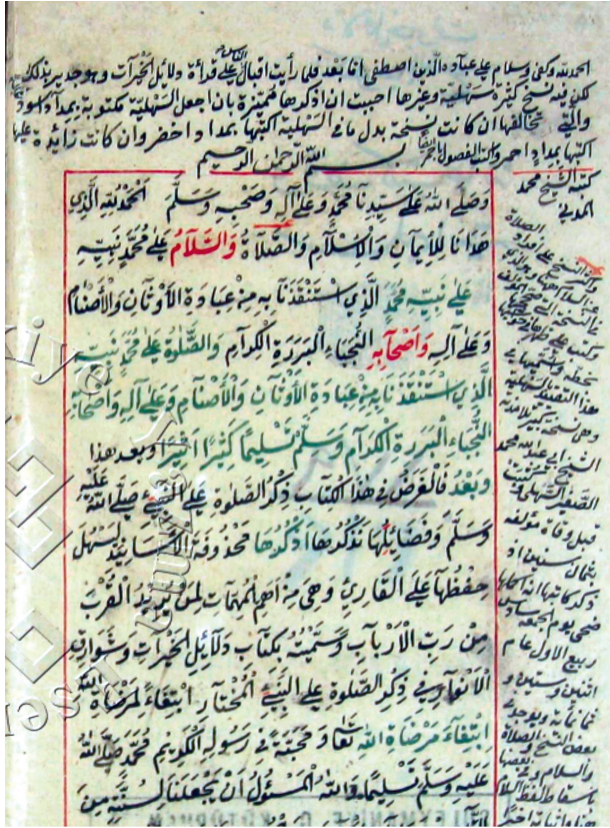 الحمد لله وكفى وسلام على عباده الذين اصطفى اما بعد فلما رأيت اقبال الناس على قراءة دلائل الخيرات وهو جدير بذلك
لكن فيه نسخ كثيرة سهلية وغيرها احببت ان اذكرها مميزة بان اجعل السهلية مكتوبة بمداد اسود
والتي تخالفها ان كانت نسخة بدل ما في السهلية اكتبها بمداد اخضر وان كانت زائدة عليها
اكتبها بمداد احمر واكتب الفصول بالحمرة ايضا
بسم الله الرحمن الرحيم
كتبه الشيخ محمد
المدني
وَصَلَّى اللهُ عَلَى سَيِّدِنَا مُحَمَّدٍ وَعَلَى آلِهِ وَصَحْبِهِ وَسَلَّمَ اَلْحَمْدُ لِلّٰهِ الَّذِي
هَدَانَا لِلْاِيمَانِ وَالْاِسْلَامِ وَالصَّلَاةُ وَالسَّلَامُ عَلَى مُحَمَّدٍ نَبِيِّهِ
عَلَى نَبِيِّهِ مُحَمَّدٍ الَّذِي اسْتَنْقَذَنَا بِهِ مِنْ عِبَادَةِ الْاَوْثَانِ وَالْاَصْنَامِ
وَعَلَى آلِهِ وَاَصْحَابِهِ النُّجَبَاءِ الْبَرَرَةِ الْكِرَامِ وَالصَّلٰوةُ عَلَى مُحَمَّدٍ نَبِيِّهِ
الَّذِي اسْتَنْقَذَنَا بِهِ مِنْ عِبَادَةِ الْاَوْثَانِ وَالْاَصْنَامِ وَعَلَى آلِهِ وَاَصْحَابِهِ
النُّجَبَاءِ الْبَرَرَةِ الْكِرَامِ وَسَلَّمَ تَسْلِيمًا كَثِيرًا اَثِيرًا وبعد هذا
وَبَعْدُ فَالْغَرَضُ فِي هٰذَا الْكِتَابِ ذِكْرُ الصَّلٰوةِ عَلَى النَّبِيِّ صَلَّى اللهُ عَلَيْهِ
وَسَلَّمَ وَفَضَائِلِهَا نَذْكُرُهَا اَذْكُرُهَا مَحْذُوفَةَ الْاَسَانِيدِ لِيَسْهُلَ
حِفْظُهَا عَلَى الْقَارِئِ وَهِيَ مِنْ اَهَمِّ الْمُهِمَّاتِ لِمَنْ يُرِيدُ الْقُرْبَ
مِنْ رَبِّ الْاَرْبَابِ وَسَمَّيْتُهُ بِكِتَابِ دَلَائِلِ الْخَيْرَاتِ وَشَوَارِقِ
الْاَنْوَارِ فِي ذِكْرِ الصَّلٰوةِ عَلَى النَّبِيِّ الْمُخْتَارِ ابْتِغَاءً لِمَرْضَاةِ اللهِ
ابْتِغَاءَ مَرْضَاةِ اللهِ تَعَالَى وَمَحَبَّةً فِي رَسُولِهِ الْكَرِيمِ مُحَمَّدٍ صَلَّى اللهُ
عَلَيْهِ وَسَلَّمَ تَسْلِيمًا وَاللهُ الْمَسْئُولُ اَنْ يَجْعَلَنَا لِسُنَّتِهِ مِنَ
الصلاة
وكتب على
هذا
وهي نسخة
الشيخ ابي عبد الله محمد
الصغير السهلي
قبل وفاة مؤلفه
بثمان سنين اذ
ذكر كاتبها انه اكملها
ضحى يوم الجمعة سادس
ربيع الاول عام
اثنين وستين و
ثمانمائة ويوجد في
بعض النسخ والصلاة
والسلام وفي بعضها
باسقاط لفظ السلام